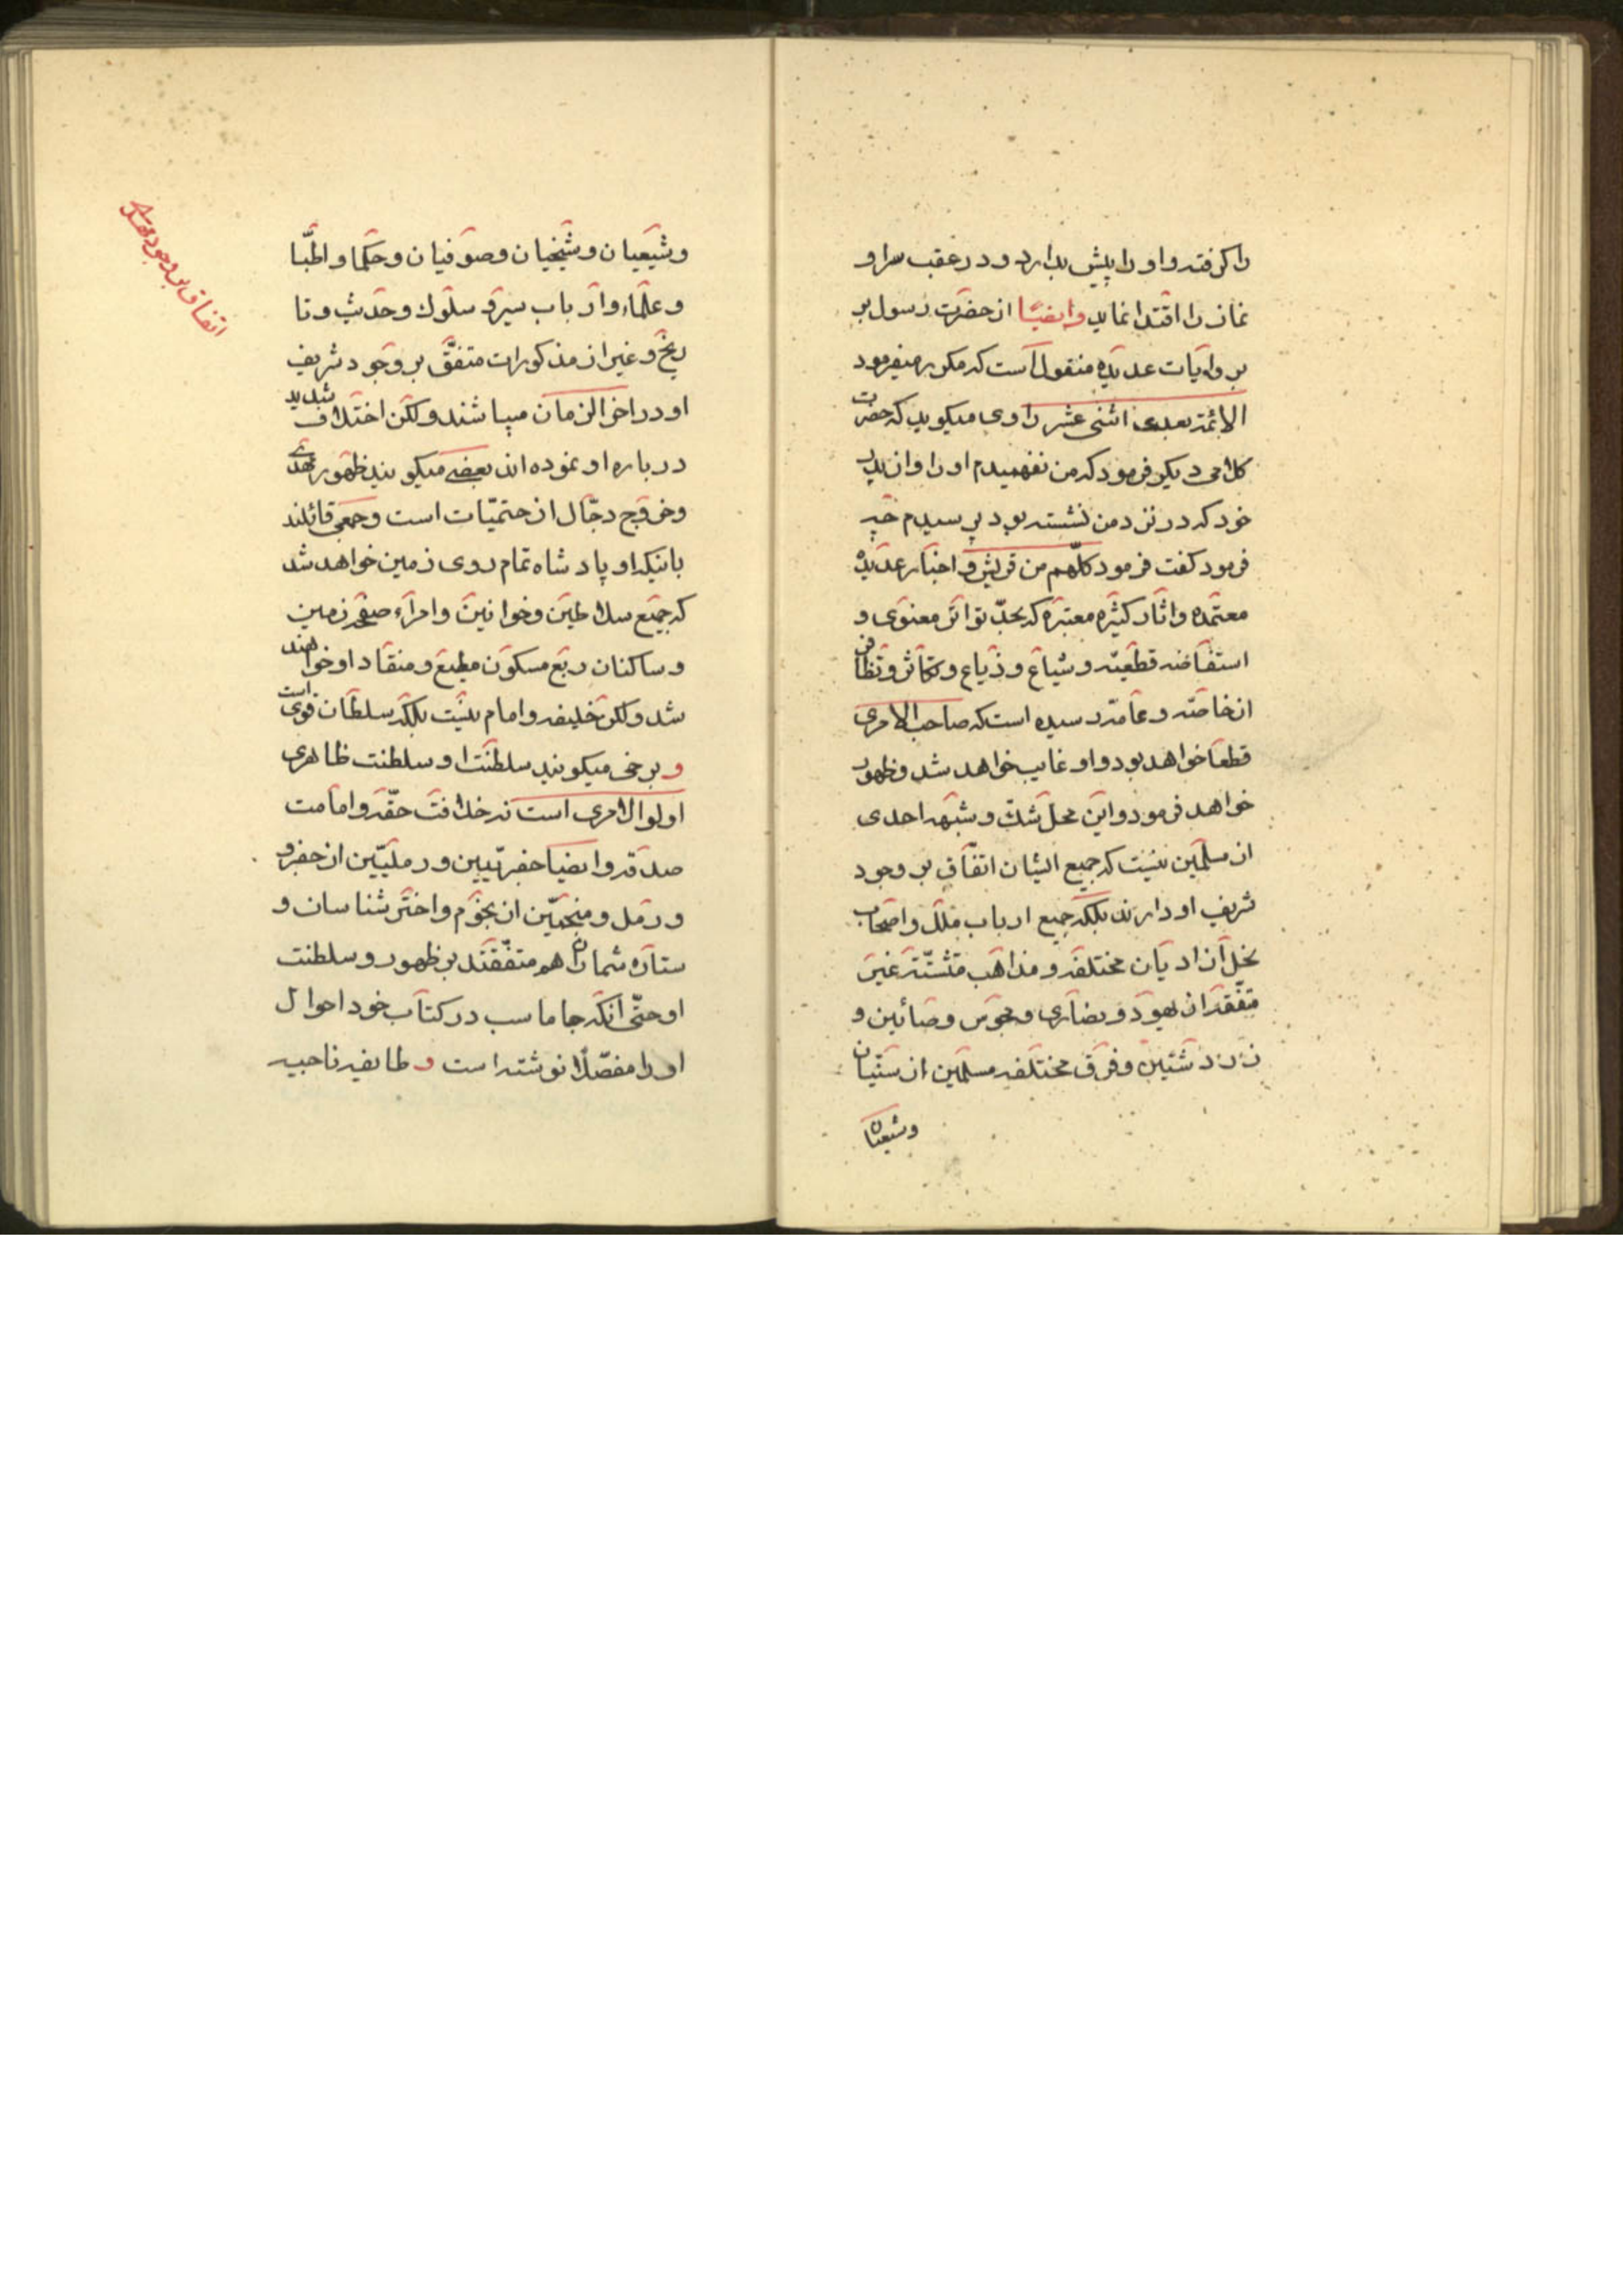 را کرفته و او را پیش بدارد و در عقب سر او
نماز را اقتدا نماید وایضًا از حضرت رسول بر
بروایات عدیده منقول است که مکرر میفرمود
الائمة بعدی اثنی عشر راوی میکوید که حضرت
کلامی دیکر فرمود که من نفهمیدم او را و از پدر
خود که در نزد من نشسته بود پرسیدم چه
فرمود کفت فرمود کلّهم من قریش و اخبار عدیده
معتمده و اثار کثیره معتبره که بحدّ تواتر معنوی و
استفاضه قطعیّه و شیاع و ذیاع و تکاثر و تظافر
از خاصّه و عامّه رسیده است که صاحب الامری
قطعا خواهد بود و او غایب خواهد شد و ظهور
خواهد فرمود و این محل شکّ و شبهه احدی
از مسلمین نیست که جمیع ایشان اتفّاق بر وجود
شریف او دارند بلکه جمیع ارباب ملل و اصحاب
نحل از ادیان مختلفه و مذاهب متشتّته غیر
متفّقه از یهود و نصاری و مجوس و صائبین و
زردشتیین و فرق مختلفه مسلمین از سنّیان
وشیعیان
وشیعیان و شیخیان و صوفیان و حکما و اطبّا
و علماء و ارباب سیر و سلوک و حدیث و تا
ریخ و غیر از مذکورات متفقّ بر وجود شریف
او در اخر الزمان میباشند ولکن اختلاف شدید
درباره او نموده اند بعضی میکویند ظهور مهدی
و خروج دجّال از حتمیّات است و جمعی قائلند
باینکه او پادشاه تمام روی زمین خواهد شد
که جمیع سلاطین و خوانین و امراء صفحه زمین
و ساکنان ربع مسکون مطیع و منقاد او خواهند
شد ولکن خلیفه و امام نیست بلکه سلطان قوی است
و برخی میکویند سلطنت او سلطنت ظاهری
اولوا الامری است نه خلافت حقّه و امامت
صدقه و ایضا جفریّیین و رملیّین از جفر و
و رمل و منجمّین از نجوم و اختر شناسان و
ستاره شماران هم متفّقند بر ظهور و سلطنت
او حتّی انکه جاماسب در کتاب خود احوال
او را مفصّلًا نوشته است و طایفه ناجیه
اتفاق بر وجود